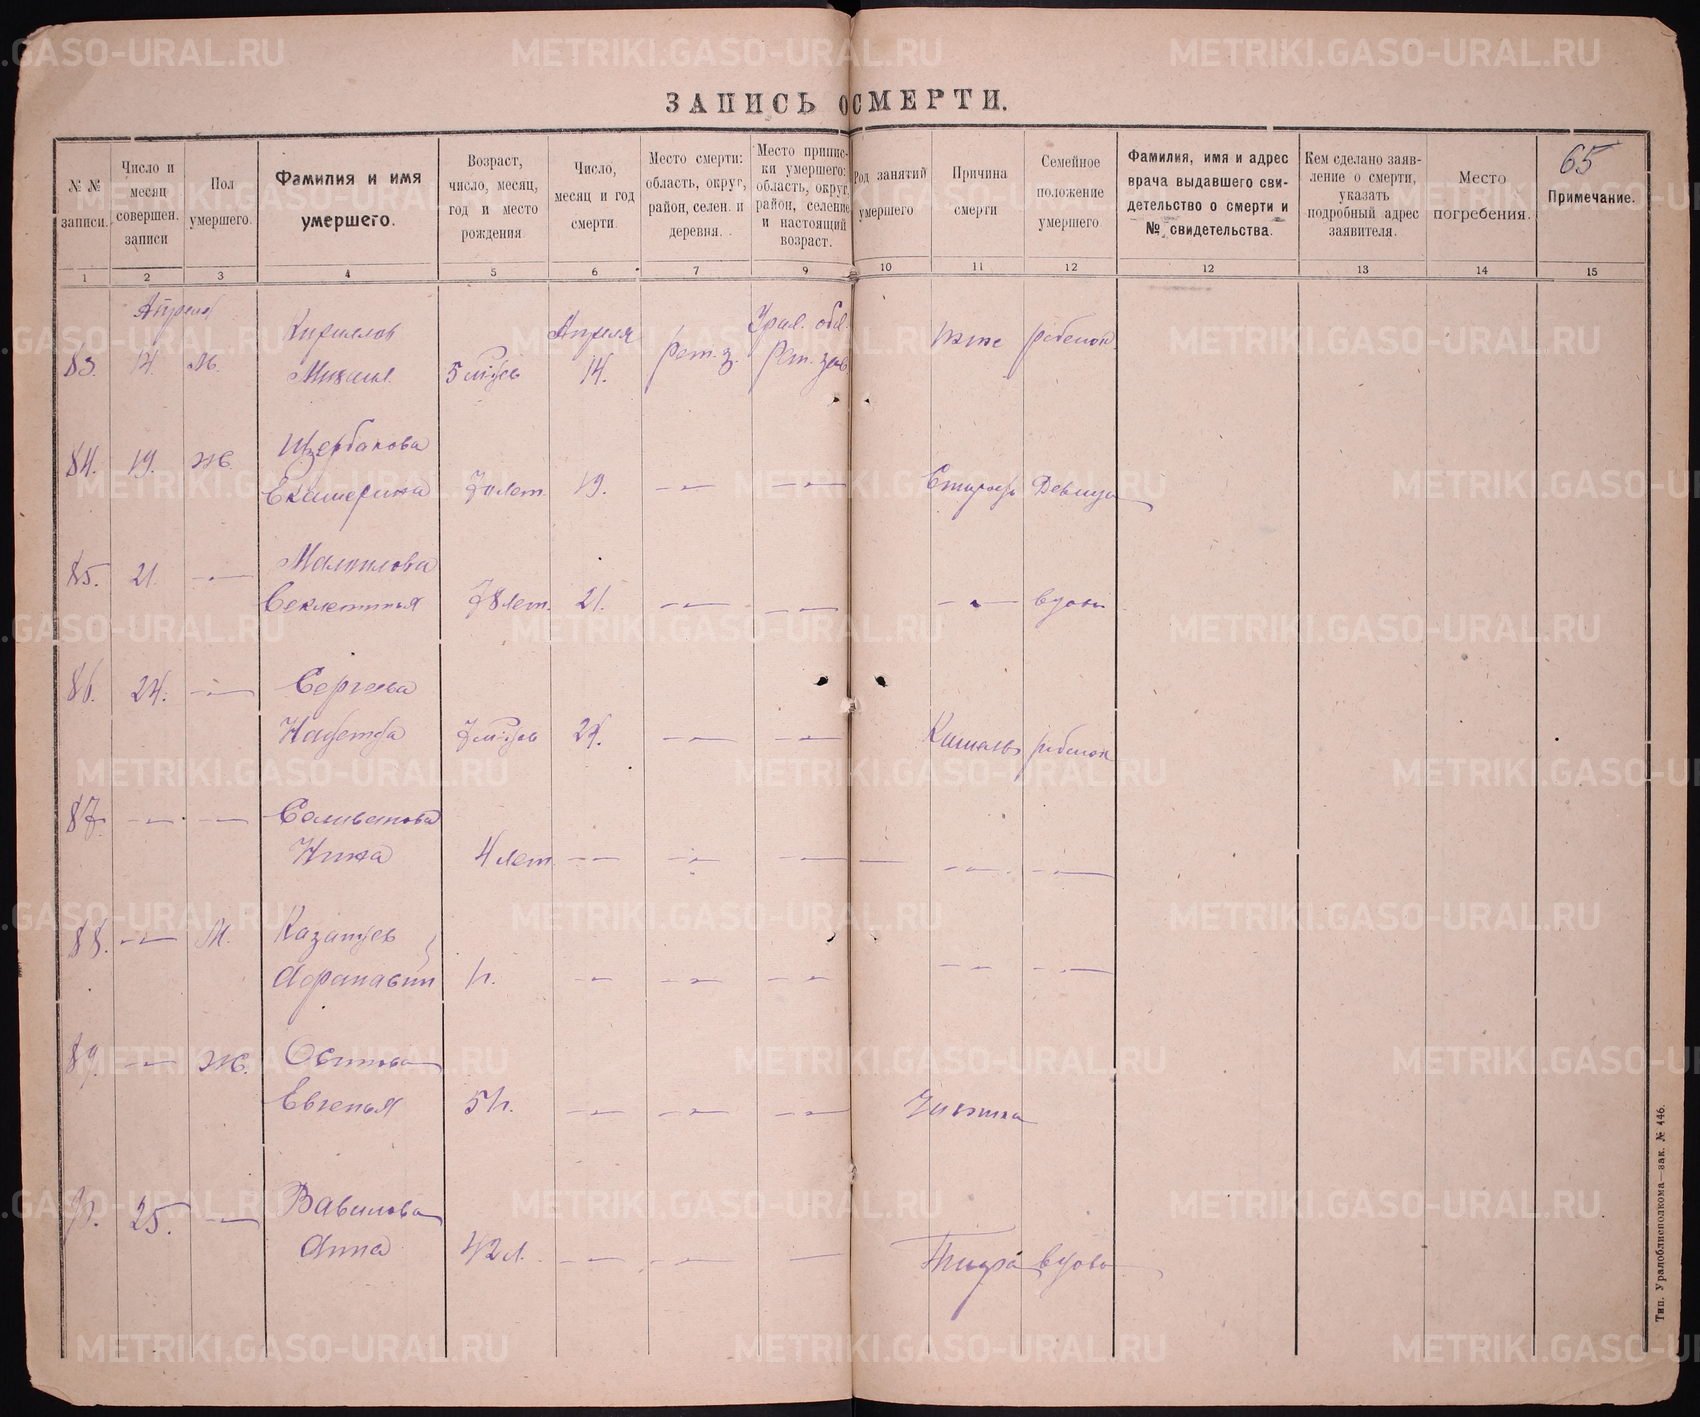 ЗАПИСЬ О СМЕРТИ.
65
№ № записи.
Число и месяц совершен. записи
Пол умершего.
Фамилия и имя умершего.
Возраст, число, месяц, год и место рождения
Число, месяц и год смерти.
Место смерти: область, округ, район, селен. и деревня.
Место приписки умершего: область, округ, район, селение и настоящий возраст.
Род занятий умершего
Причина смерти
Семейное положение умершего
Фамилия, имя и адрес врача выдавшего свидетельство о смерти и № свидетельства.
Кем сделано заявление о смерти, указать подробный адрес заявителя.
Место погребения.
Примечание.
1 2 3 4 5 6 7 9 10 11 12 12 13 14 15
Апреля Кириллов Апреля Урал. обл.
83. 14. М. Михаил 5 14. Реж. з. Реж. зав. ребенок
84. 19. Ж. Щербакова
Екатерина 70 лет. 19. — — Старость Девица
85. 21. — Малыгова
Секлетинья 78 лет. 21. — — — вдова
86. 24. — Сергеева
7 24. — — Кашель ребенок
87. — — Селиванова
Нина 4 лет — — — — — —
88. — М. Казанцев
Афанасий — — — — —
89. — Ж.
Евгенья — — —
25. — Вавилова
Анна 42 л. — — — вдова
Тип. Уралоблисполкома—зак. № 446.
METRIKI.GASO-URAL.RU